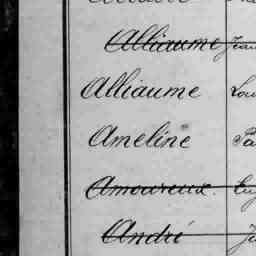 Alliaume
Alliaume Lou
Ameline Pa
Amoureux. Eug
André